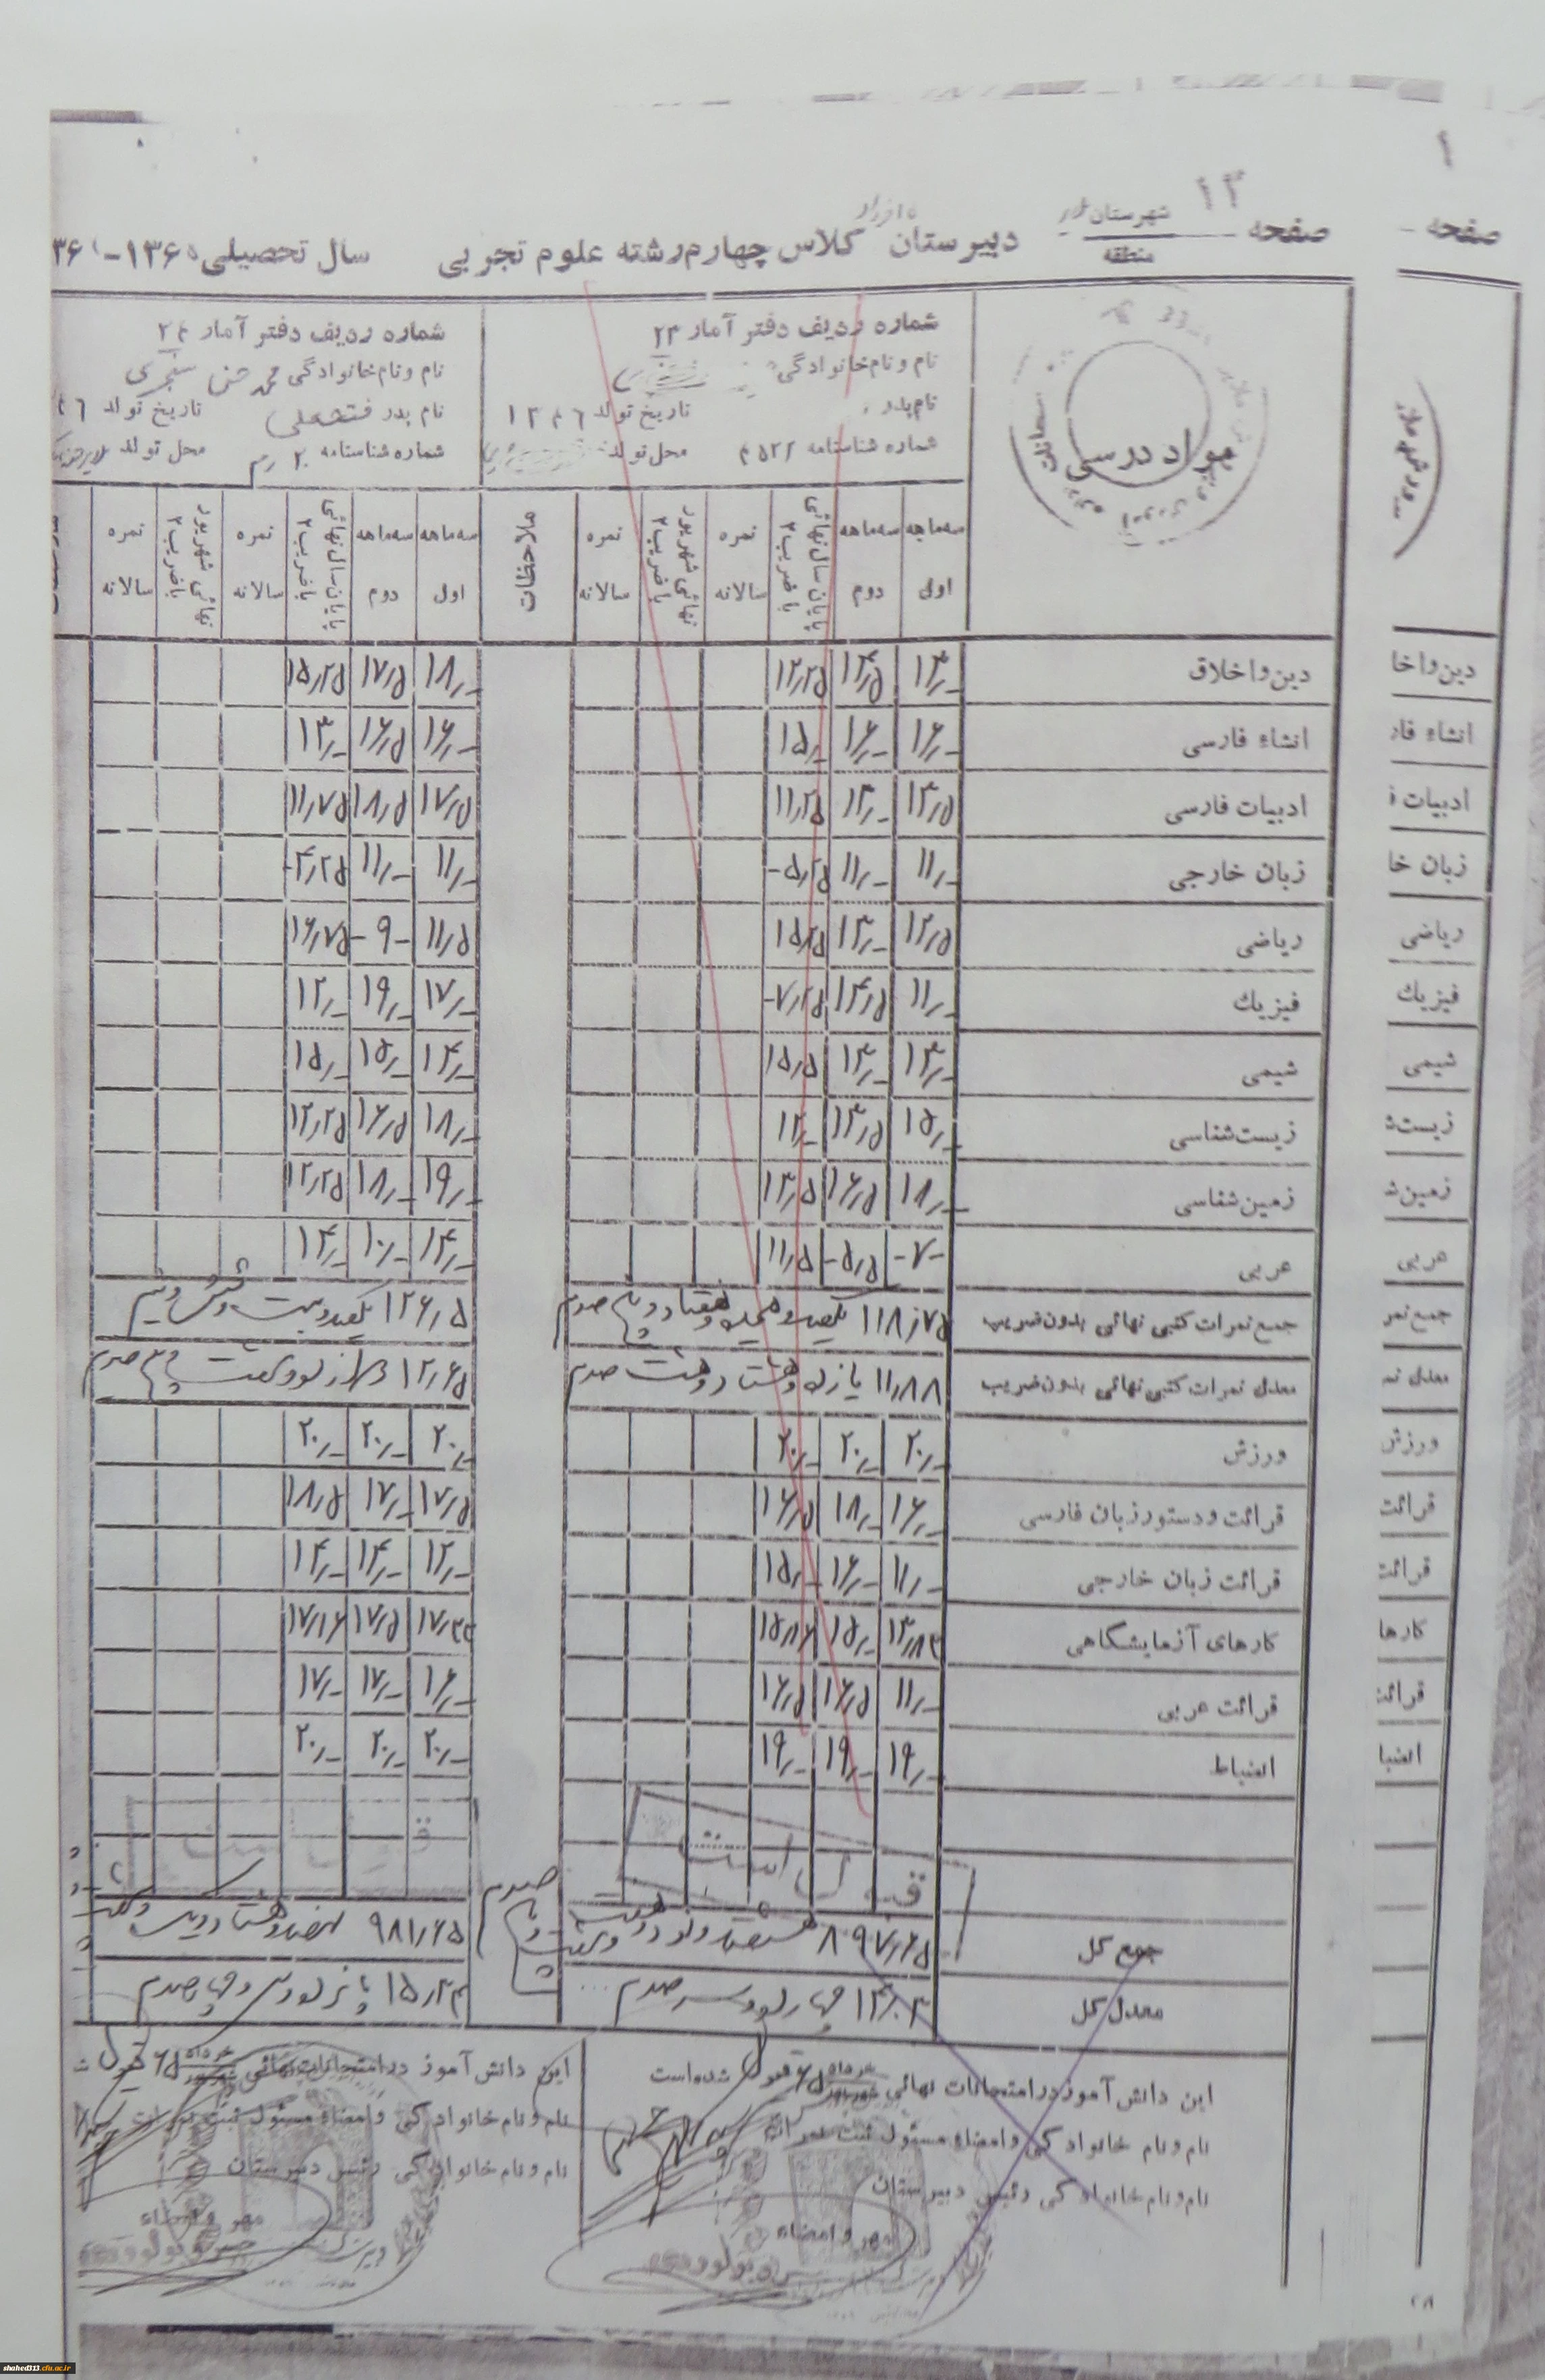 ۱
صفحه
صفحه ۱۳
شهرستان
منطقه
دبیرستان کلاس چهارم رشته علوم تجربی
سال تحصیلی ۱۳۶۰-۳۶
مواد درسی
شماره ردیف دفتر آمار ۲۳
نام و نام خانوادگی
نام پدر
تاریخ تولد ۱۳۴۶
شماره شناسنامه
محل تولد
شماره ردیف دفتر آمار ۲۴
نام و نام خانوادگی محمد حسن
نام پدر فتحعلی
تاریخ تولد
شماره شناسنامه
محل تولد
سه‌ماهه اول
سه‌ماهه دوم
پایان سال نهائی با ضریب ۲
نمره سالانه
نهائی شهریور با ضریب ۲
نمره سالانه
ملاحظات
سه‌ماهه اول
سه‌ماهه دوم
پایان سال نهائی با ضریب ۲
نمره سالانه
نهائی شهریور با ضریب ۲
نمره سالانه
دین و اخلاق ۱۳/- ۱۴/۵ ۱۲/۲۵ ۱۸/- ۱۷/۵ ۱۵/۲۵
انشاء فارسی ۱۶/- ۱۶/- ۱۵/- ۱۶/- ۱۶/۵ ۱۳/-
ادبیات فارسی ۱۳/۵ ۱۳/- ۱۱/۲۵ ۱۷/۵ ۱۸/۵ ۱۱/۷۵
زبان خارجی ۱۱/- ۱۱/- ۵/۲۵- ۱۱/- ۱۱/- ۴/۲۵-
ریاضی ۱۲/۵ ۱۳/- ۱۵/۲۵ ۱۱/۵ -۹- ۱۶/۷۵
فیزیک ۱۱/- ۱۴/۵ ۷/۲۵- ۱۷/- ۱۹/- ۱۲/-
شیمی ۱۳/- ۱۳/- ۱۵/۵ ۱۴/- ۱۵/- ۱۵/-
زیست‌شناسی ۱۵/- ۱۳/۵ ۱۲/- ۱۸/- ۱۶/۵ ۱۲/۲۵
زمین‌شناسی ۱۸/- ۱۶/۵ ۱۳/۵ ۱۹/- ۱۸/- ۱۲/۲۵
عربی -۷- ۵/۵- ۱۱/۵ ۱۴/- ۱۰/- ۱۴/-
جمع نمرات کتبی نهائی بدون ضریب ۱۱۸/۷۵ یکصد و هجده و هفتاد و پنج صدم ۱۲۶/۵ یکصد و بیست و شش و نیم
معدل نمرات کتبی نهائی بدون ضریب ۱۱/۸۸ یازده و هشتاد و هشت صدم ۱۲/۶۵ دوازده و شصت و پنج صدم
ورزش ۲۰/- ۲۰/- ۲۰/- ۲۰/- ۲۰/- ۲۰/-
قرائت و دستور زبان فارسی ۱۶/- ۱۸/- ۱۶/۵ ۱۷/۵ ۱۷/- ۱۸/۵
قرائت زبان خارجی ۱۱/- ۱۶/- ۱۵/- ۱۲/- ۱۴/- ۱۴/-
کارهای آزمایشگاهی ۱۳/۸۳ ۱۵/- ۱۵/۸۶ ۱۷/۳۳ ۱۷/۵ ۱۷/۱۶
قرائت عربی ۱۱/- ۱۶/۵ ۱۶/۵ ۱۶/- ۱۷/- ۱۷/-
انضباط ۱۹/- ۱۹/- ۱۹/- ۲۰/- ۲۰/- ۲۰/-
جمع کل ۸۹۷/۶۵ هشتصد و نود و هفت و شصت و پنج صدم ۹۸۱/۶۵ نهصد و هشتاد و یک و شصت
معدل کل ۱۴/۰۳ چهارده و سه صدم ۱۵/۳۴ پانزده و سی و چهار صدم
این دانش آموز در امتحانات نهائی خرداد ۶۵ قبول شده است
نام و نام خانوادگی و امضاء مسئول ثبت نمرات
نام و نام خانوادگی رئیس دبیرستان
مهر و امضاء
این دانش آموز در امتحانات نهائی خرداد ۶۵ قبول
نام و نام خانوادگی و امضاء مسئول ثبت نمرات
نام و نام خانوادگی رئیس دبیرستان
مهر و امضاء
دین و اخلا
انشاء فار
ادبیات ف
زبان خا
ریاضی
فیزیک
شیمی
زیست‌ش
زمین‌ش
عربی
جمع نمر
معدل نم
ورزش
قرائت
قرائت
کارها
قرائت
انضبا
shahed313.cfu.ac.ir